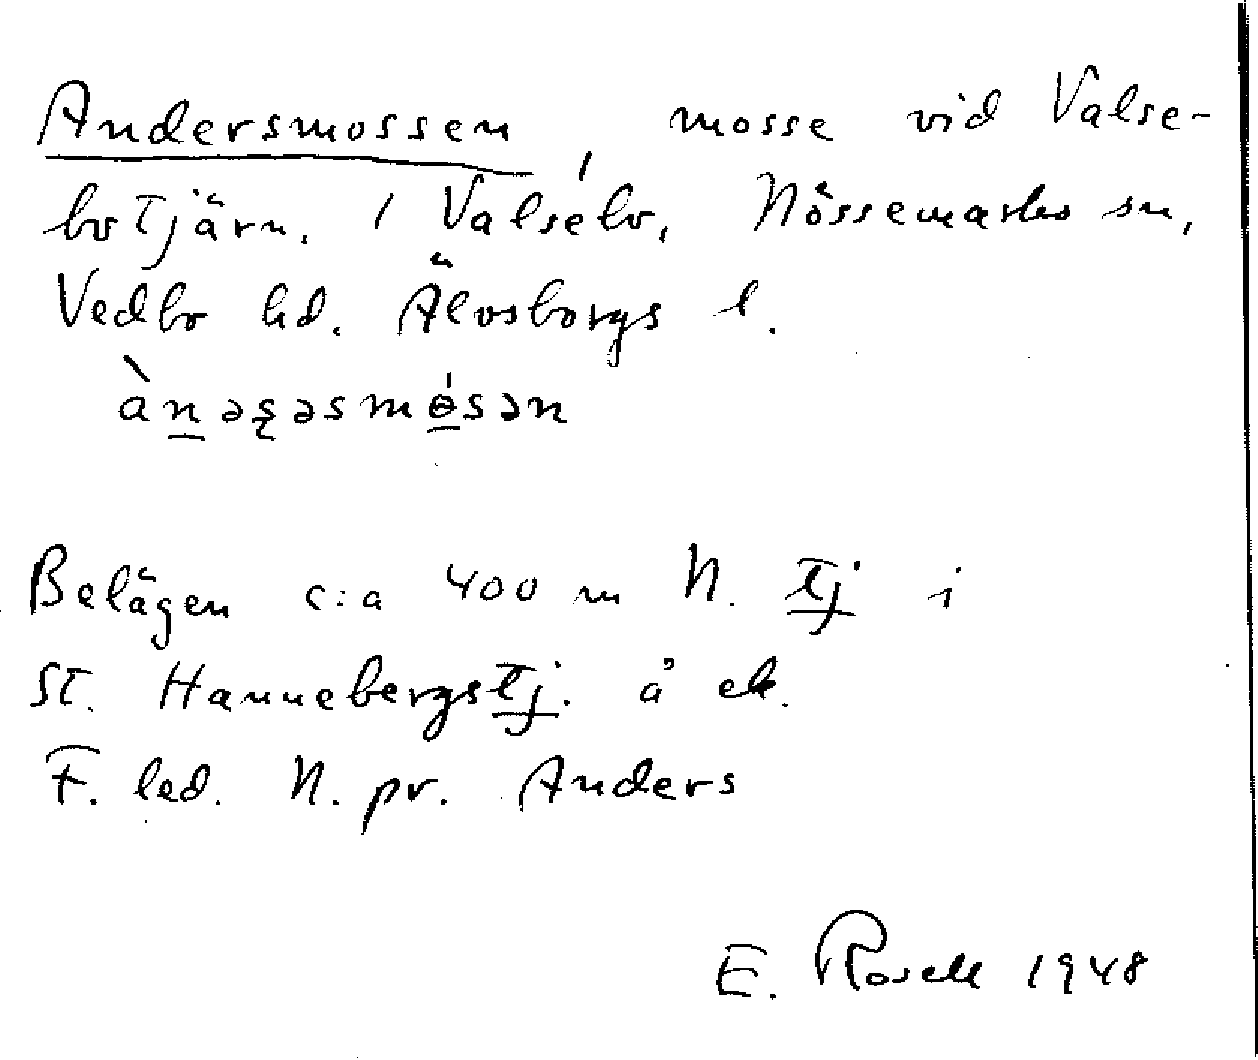 Andersmossen, mosse vid Valse-
botjärn. 1 Valsebo, Nössemarks sn,
Vedbo hd. Älvsborgs l.
Belägen c:a 400 m N. tj i
St. Hannebergstj. å ek.
F. led. N. pr. Anders
E. Rosell 1948